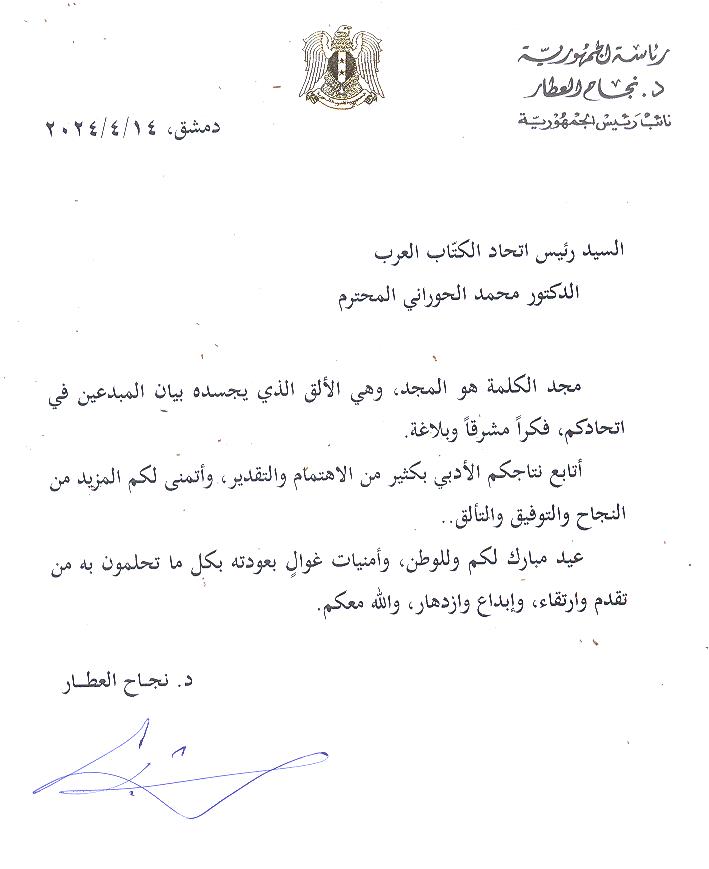 رئاسة الجمهورية
د. نجاح العطار
نائب رئيس الجمهورية
دمشق، ٢٠٢٤/٤/١٤
السيد رئيس اتحاد الكتّاب العرب
الدكتور محمد الحوراني المحترم
مجد الكلمة هو المجد، وهي الألق الذي يجسده بيان المبدعين في
اتحادكم، فكراً مشرقاً وبلاغة.
أتابع نتاجكم الأدبي بكثير من الاهتمام والتقدير، وأتمنى لكم المزيد من
النجاح والتوفيق والتألق..
عيد مبارك لكم وللوطن، وأمنيات غوالٍ بعودته بكل ما تحلمون به من
تقدم وارتقاء، وإبداع وازدهار، والله معكم.
د. نجـاح العطــار